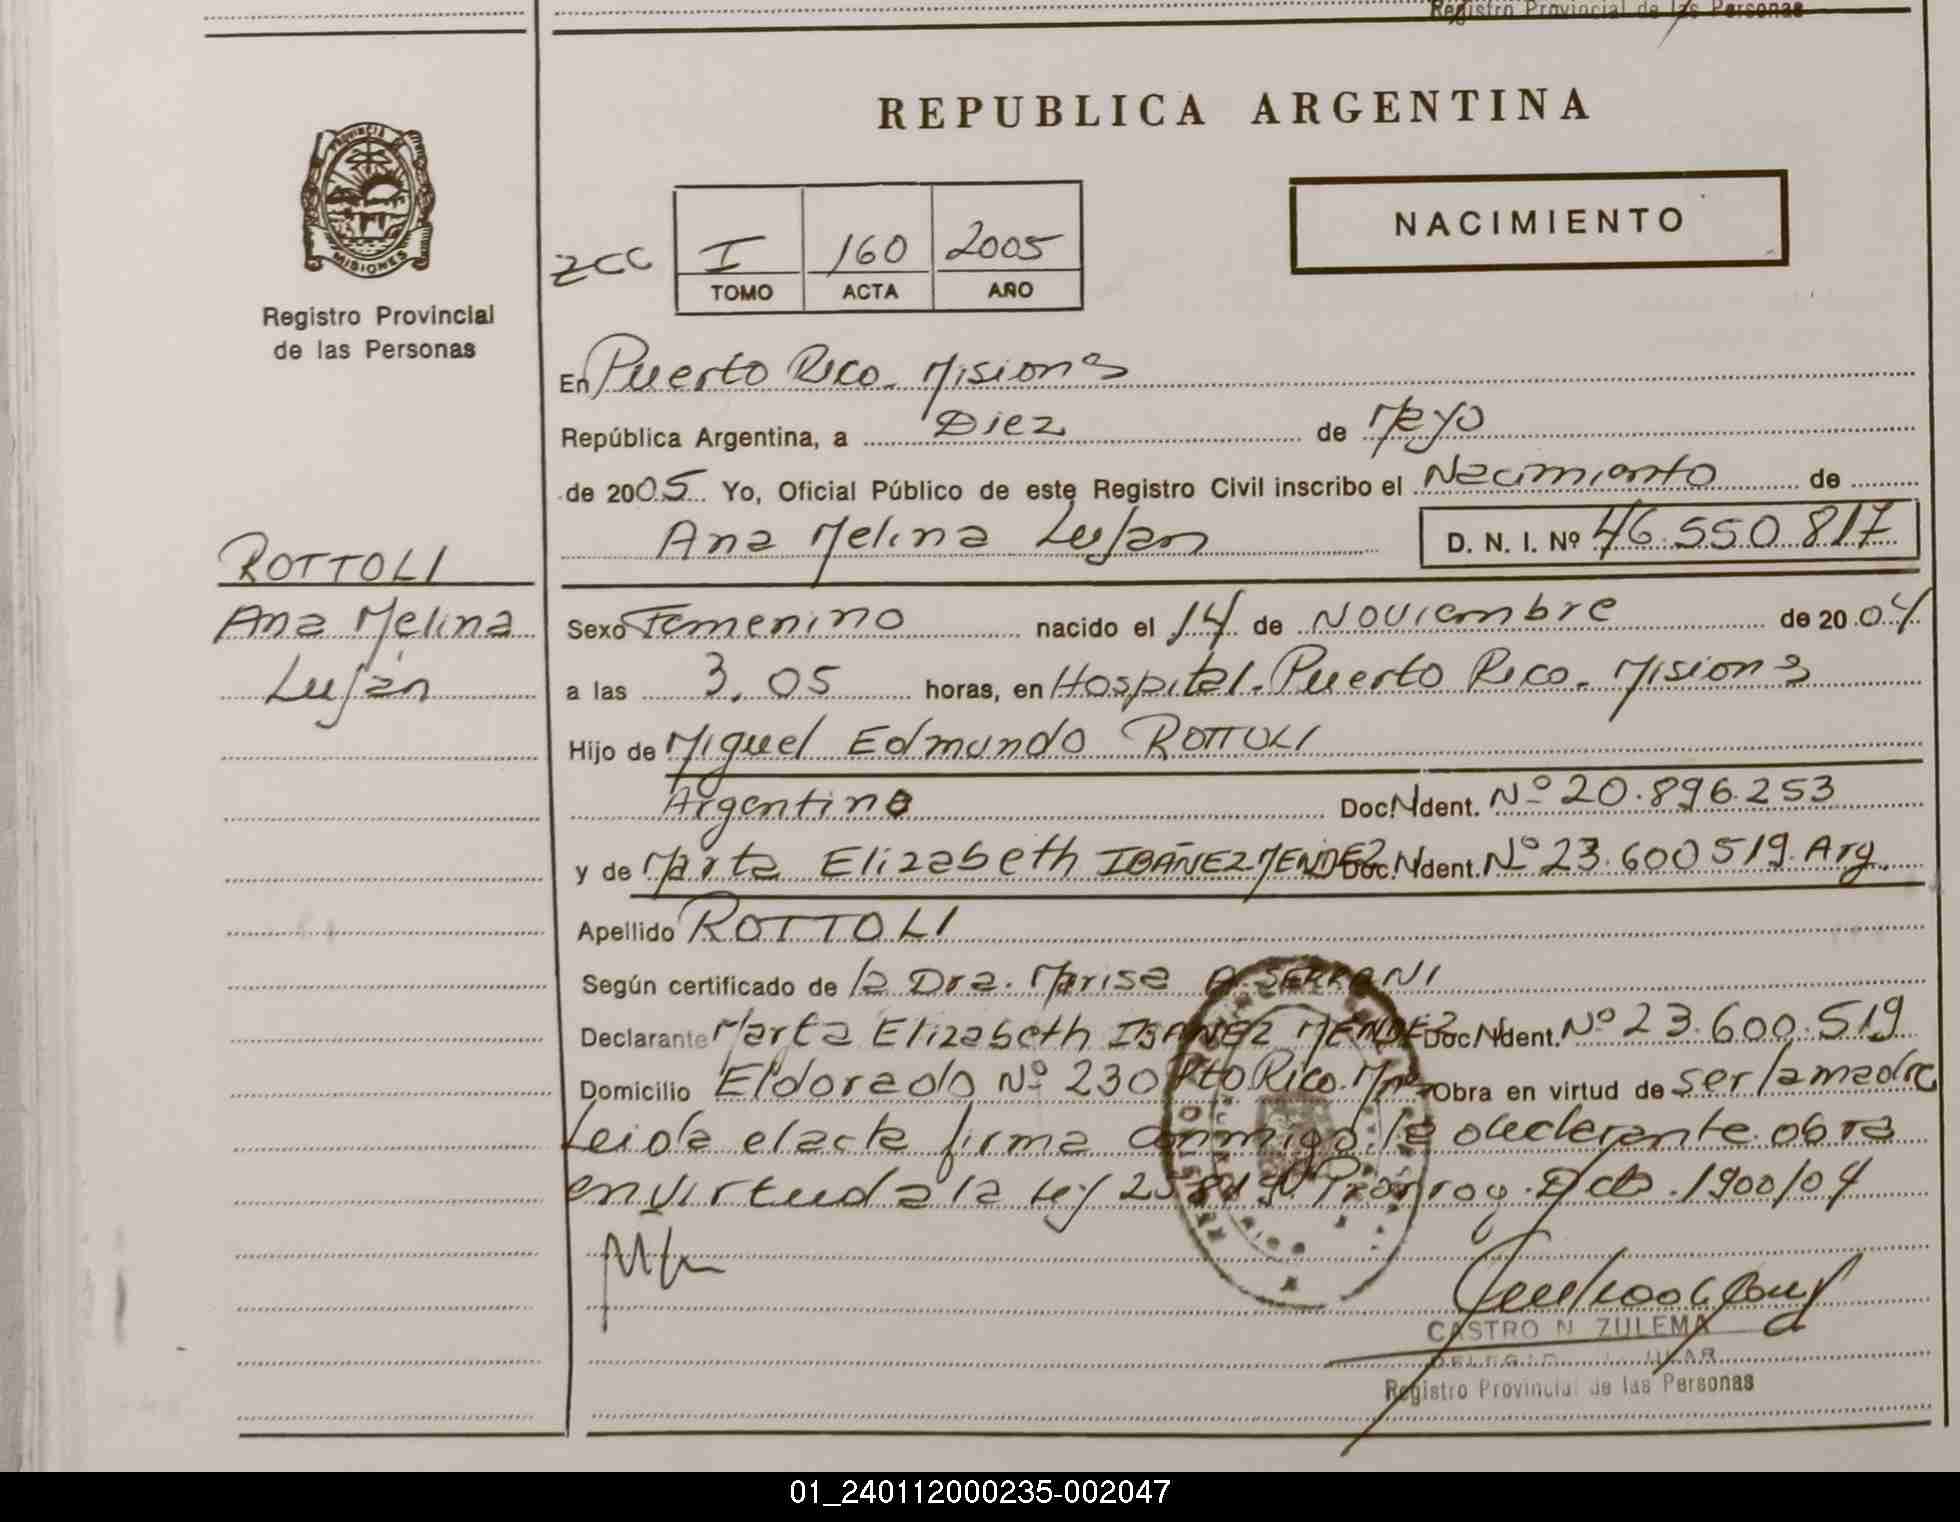 Registro Provincial de las Personas
REPUBLICA ARGENTINA
PROVINCIA
MISIONES
Registro Provincial
de las Personas
NACIMIENTO
zcc
I 160 2005
TOMO ACTA AÑO
En Puerto Rico. Misiones
República Argentina, a Diez de Mayo
de 2005 Yo, Oficial Público de este Registro Civil inscribo el Nacimiento de
Ana Melina Luján D. N. I. Nº 46.550.817
ROTTOLI
Ana Melina
Luján
Sexo Femenino nacido el 14 de Noviembre de 2004
a las 3.05 horas, en Hospital. Puerto Rico. Misiones
Hijo de Miguel Edmundo ROTTOLI
Argentino Doc. Ident. Nº 20.896.253
y de Marta Elizabeth IBAÑEZ MENDEZ Doc. Ident. Nº 23.600519. Arg.
Apellido ROTTOLI
Según certificado de la Dra. Marisa A. SERRANI
Declarante Marta Elizabeth IBAÑEZ MENDEZ Doc. Ident. Nº 23.600.519
Domicilio Eldorado Nº 230 Pto Rico. Mnes Obra en virtud de ser la madre
Leida el acta firma conmigo la declarante. obra
en virtud a la Ley 25.819. Prorrog. Dcto. 1900/04
CASTRO N. ZULEMA
Registro Provincial de las Personas
01_240112000235-002047